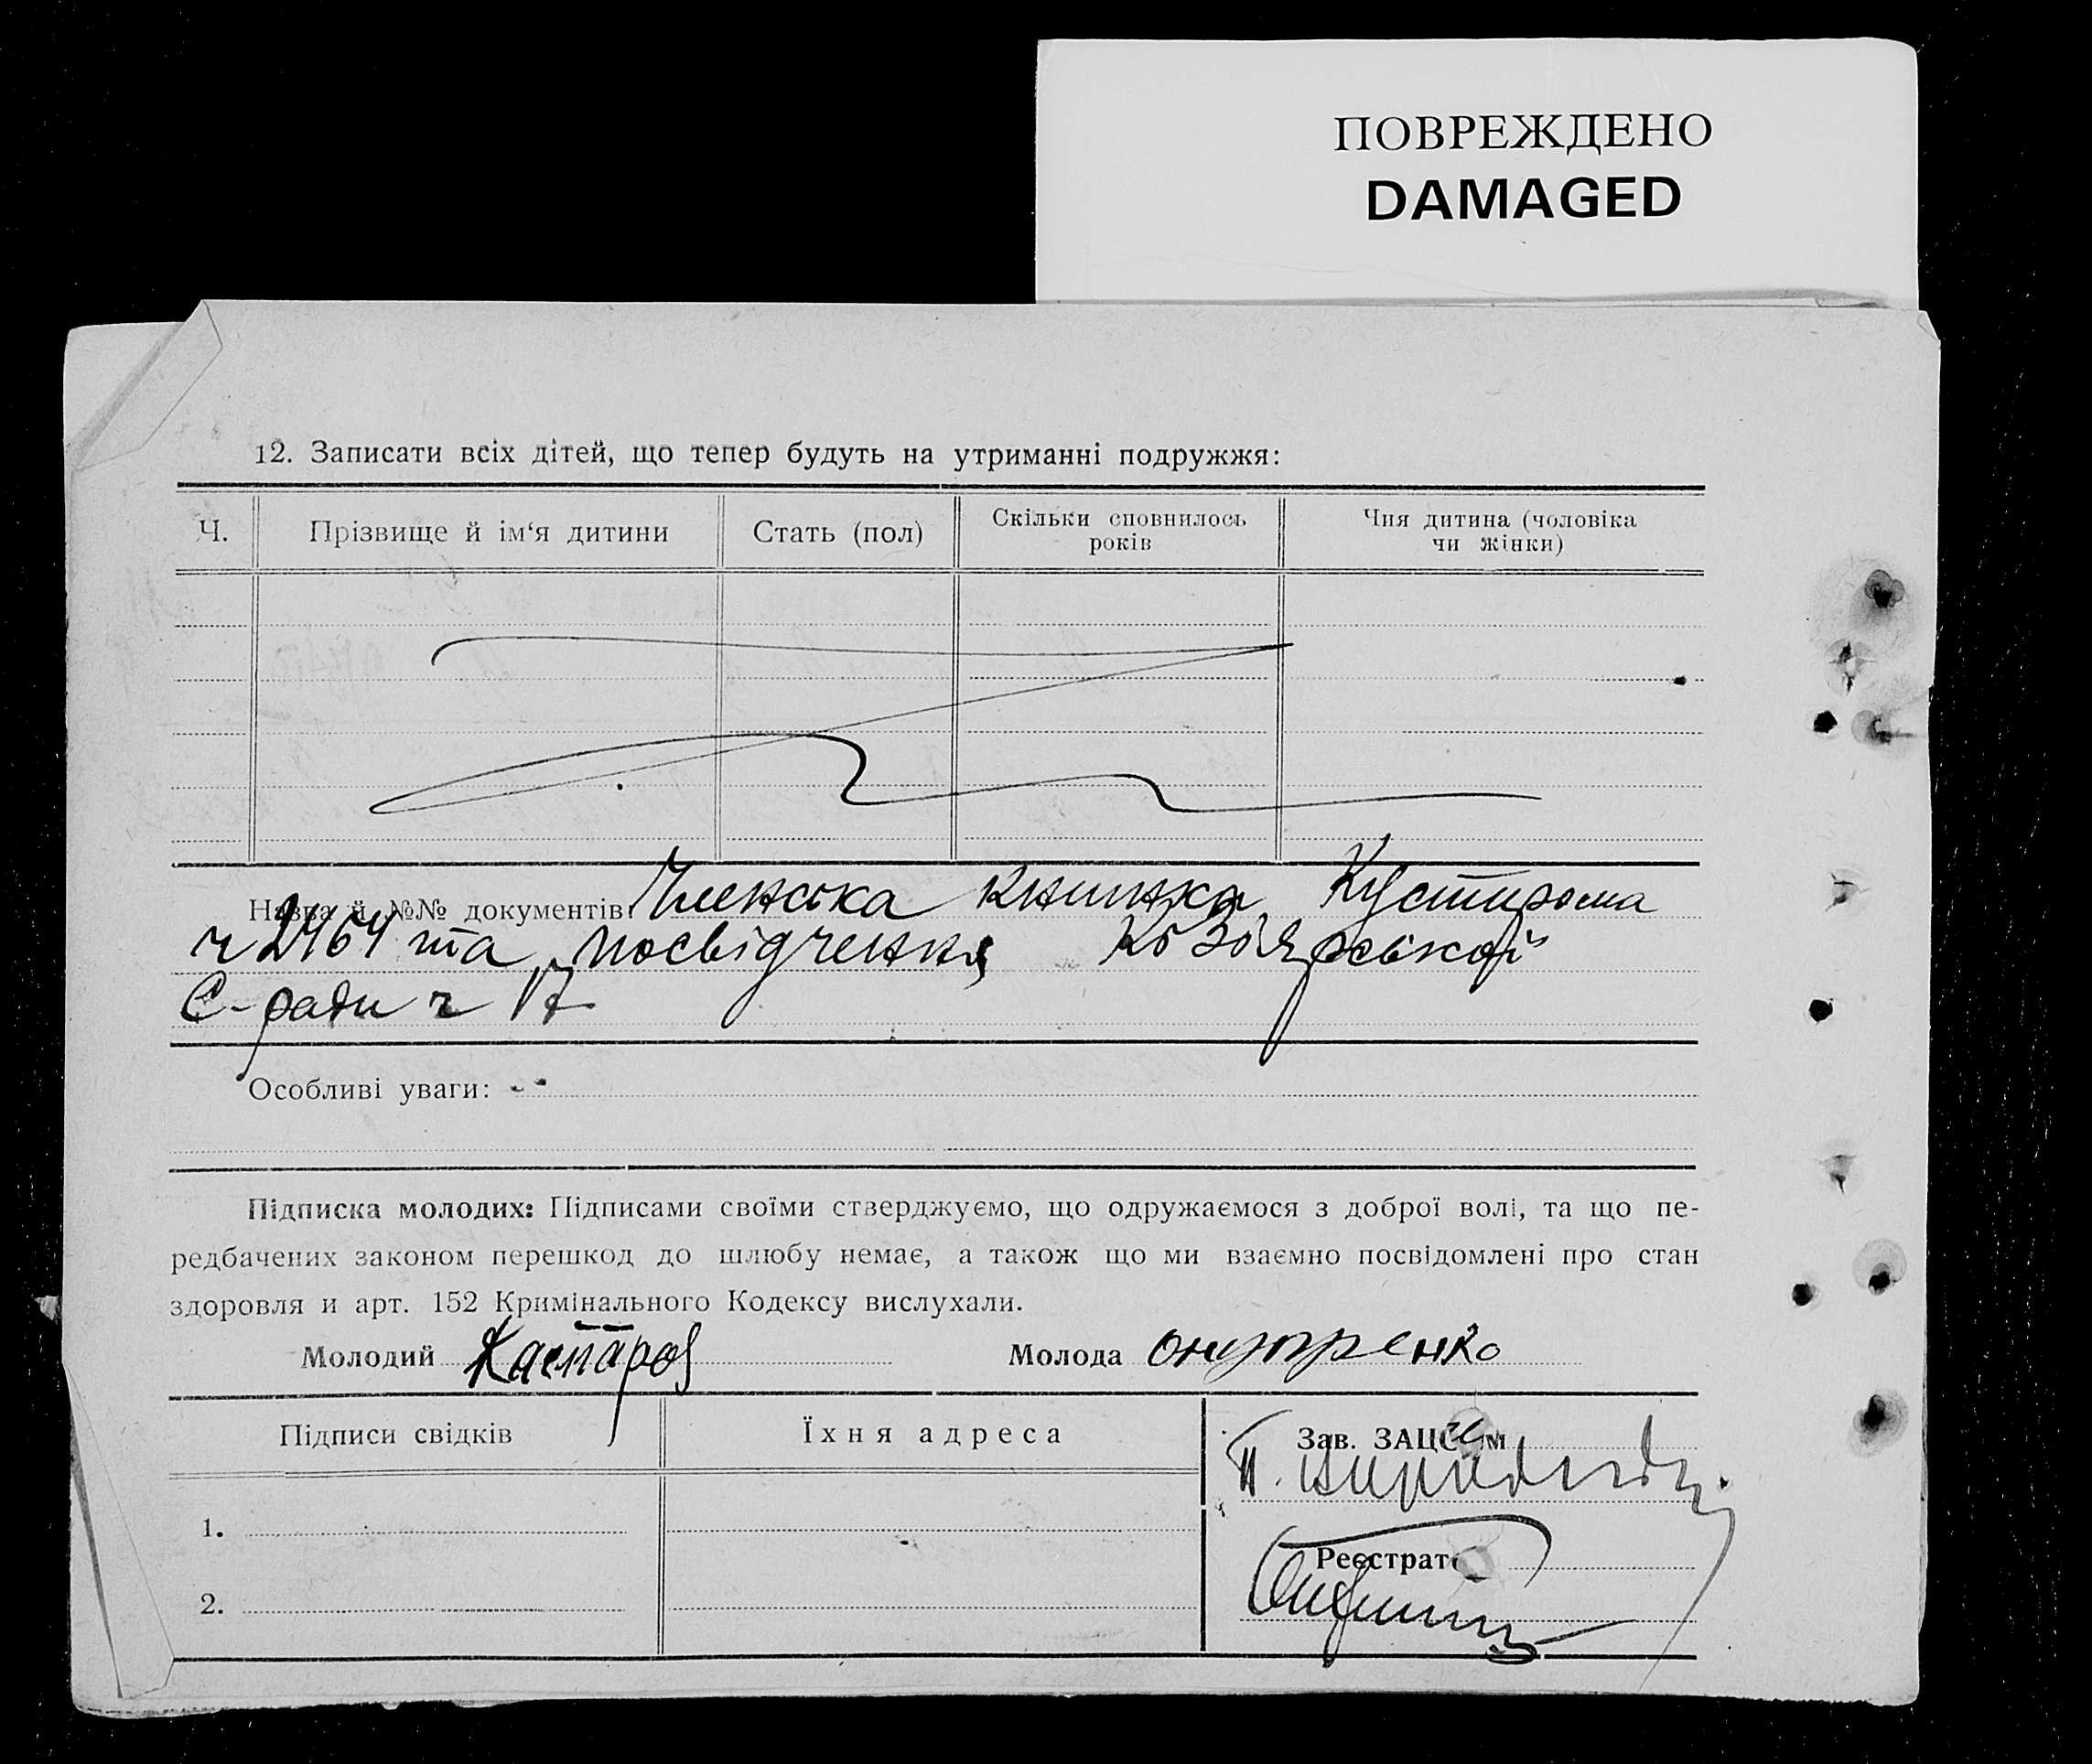 ПОВРЕЖДЕНО
DAMAGED
12. Записати всіх дітей, що тепер будуть на утриманні подружжя:
Ч. Прізвище й ім‘я дитини Стать (пол) Скільки сповнилось років Чия дитина (чоловіка чи жінки)
Назва й №№ документів: Членська книжка Кустирома
ч 2464 та посвідчення Козярської
С-ради ч 17
Особливі уваги: --
Підписка молодих: Підписами своїми стверджуємо, що одружаємося з доброї волі, та що пе-
редбачених законом перешкод до шлюбу немає, а також що ми взаємно посвідомлені про стан
здоровля и арт. 152 Кримінального Кодексу вислухали.
Молодий Каспаров Молода Онупренко
Підписи свідків Їхня адреса Зав. ЗАЦСʼом
П.
1.
Реєстрат
2.